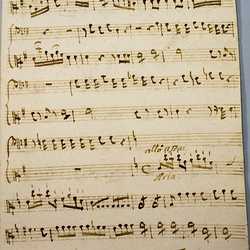 allo assai
Aria